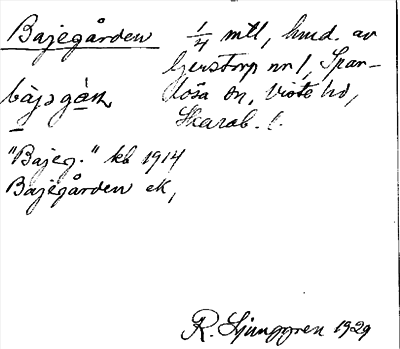 Bajegården
1/4 mtl, hmd. av
Gerstorp nr 1, Spar-
lösa sn, Viste hd,
Skarab. l.
"Bajeg." kb 1914
Bajegården ek,
R. Ljunggren 1929